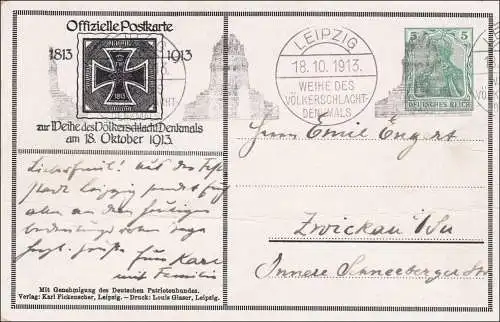 Offizielle Postkarte
1813 1913
1813
zur Weihe des Völkerschlacht Denkmals
am 18. Oktober 1913.
LEIPZIG
18.10.1913.
WEIHE DES
VÖLKERSCHLACHT-
DENKMALS
5 5
DEUTSCHES REICH
Herrn Emil Engert
Zwickau i/Sa
Innere Schneeberger Str
Aus der Fest
stadt Leipzig sendet
an dem heutigen
Grüße Euer Karl
mit Familie
Mit Genehmigung des Deutschen Patriotenbundes.
Verlag: Karl Fickenscher, Leipzig. – Druck: Louis Glaser, Leipzig.